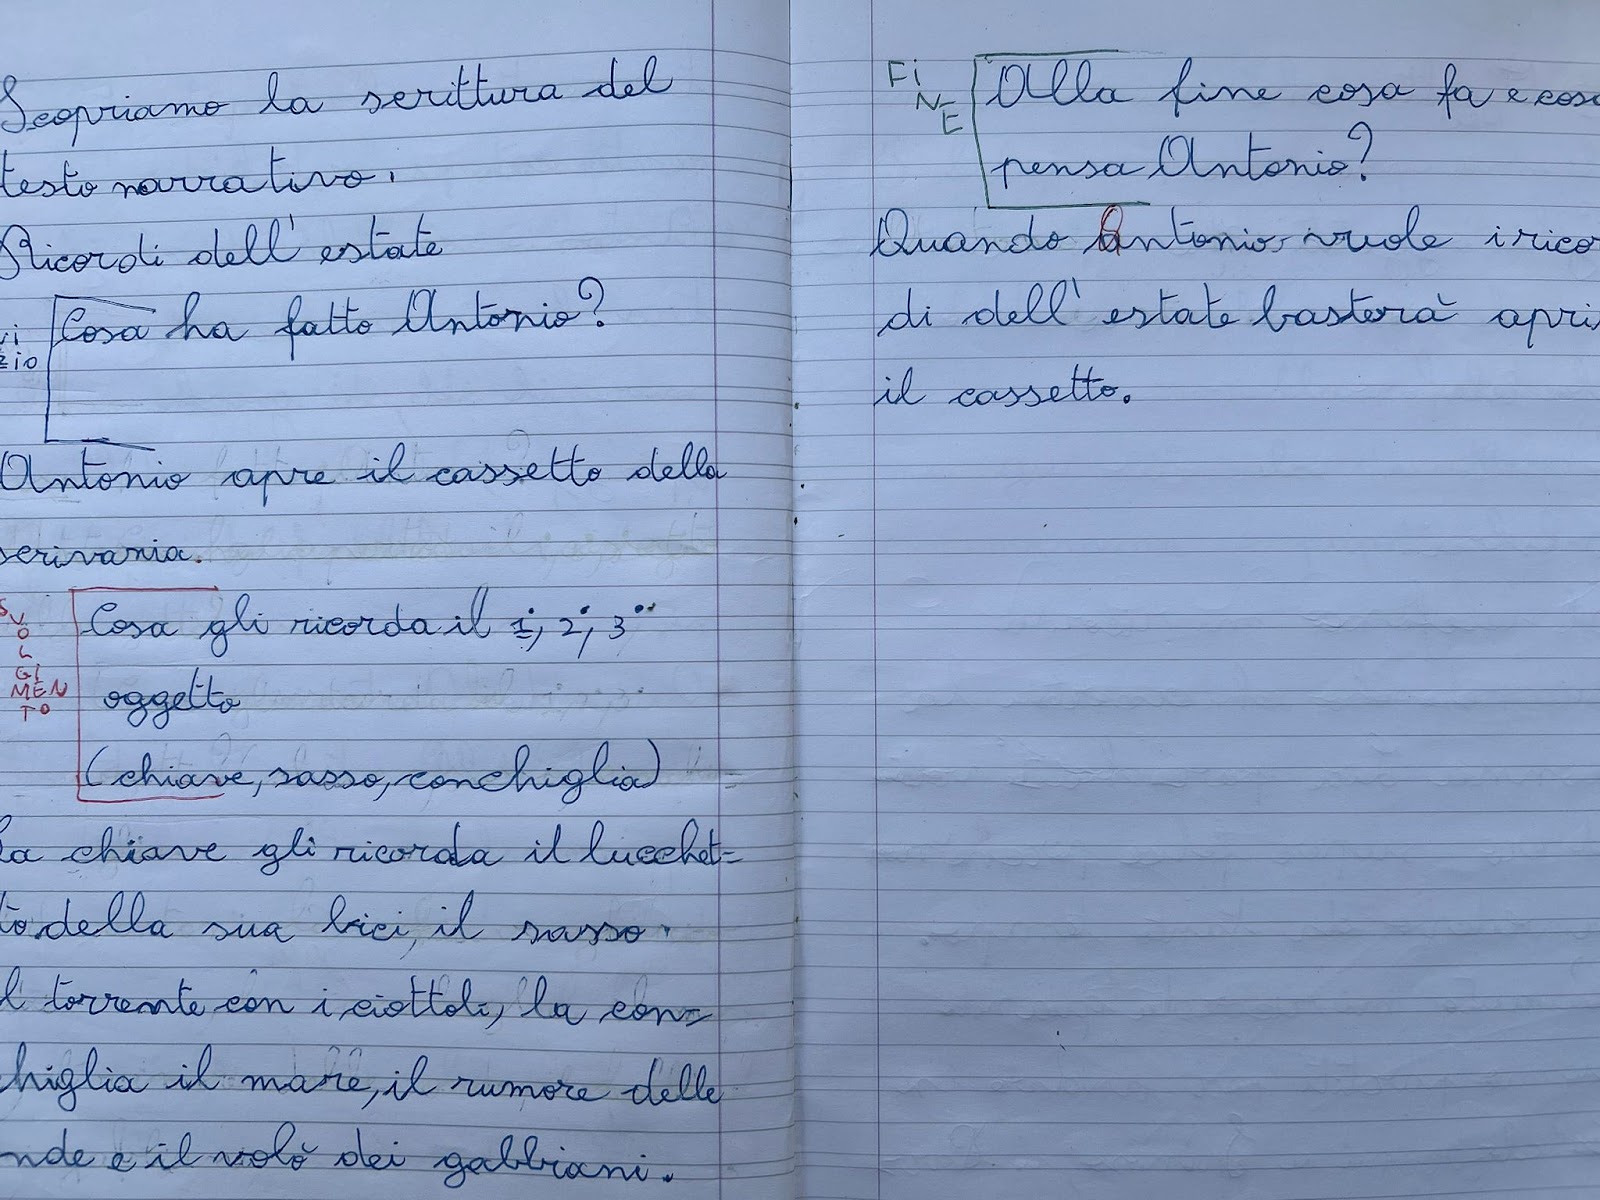 Scopriamo la scrittura del
testo narrativo.
Ricordi dell'estate
Cosa ha fatto Antonio?
zio
Antonio apre il cassetto della
scrivania.
SVOLGIMENTO
Cosa gli ricorda il 1°, 2°, 3°
oggetto
(chiave, sasso, conchiglia)
La chiave gli ricorda il lucchet=
to della sua bici, il sasso
l torrente con i ciottoli, la con=
chiglia il mare, il rumore delle
nde e il volo dei gabbiani.
FINE
Alla fine cosa fa e cosa
pensa Antonio?
Quando Antonio vuole i ricor
di dell'estate basterà apri
il cassetto.